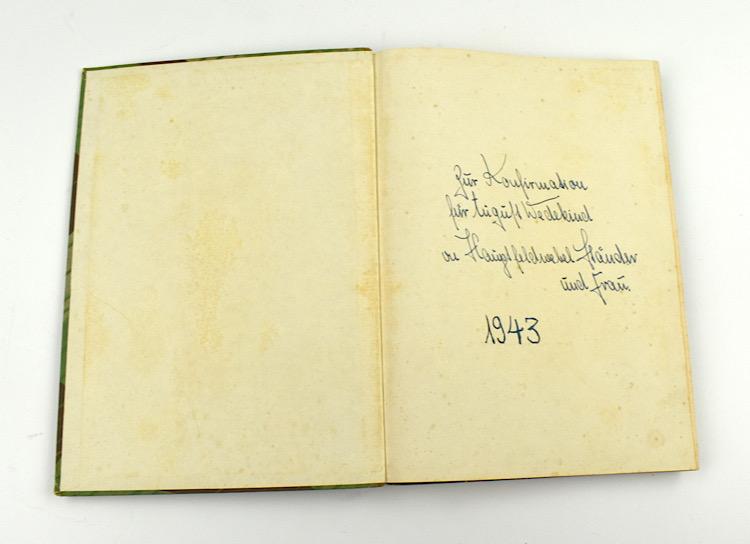 Zur Konfirmation
für August Wedekind
Hauptfeldwebel Ständer
und Frau.
1943